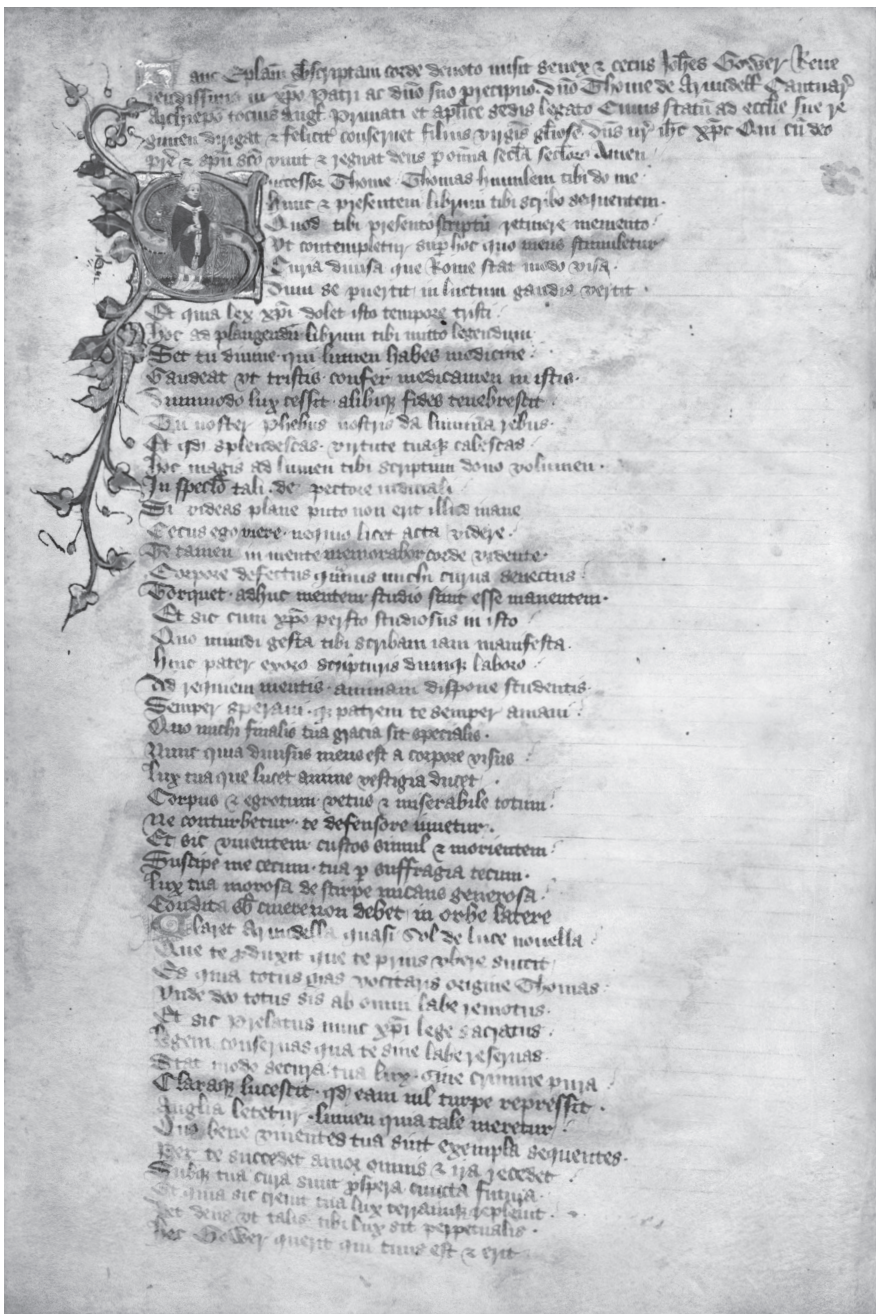 Hanc Epłam sbscriptam corde deuoto misit senex & cecus Joħes Gower Reue
rendissimo in xp̄o Patri ac dño suo precipuo dño Thome de Arundełł Cantuar
Archiepo tocius Angł Primati et aplice sedis legato Cuius statū ad ecclie sue re
gimen dirigat & felicit conseruet filius virgis gliose Dñs nr̄ ihc xp̄c Qui cū deo
pr̄e & sp̄u scō viuit & regnat deus p om̄ia secła secłor Amen
Successor Thome Thomas humilem tibi do me
Hunc & presentem librum tibi scribo sequentem
Quod tibi presento scriptū retinere memento
Vt contempletur sup hoc quo mens stimuletur
Curia diuisa que Rome stat modo visa
Dum se puertit in luctum gaudia vertit
Et quia lex xp̄i dolet isto tempore tristi
Hoc ad plangendū librum tibi mitto legendum
Set tu diuine qui lumen habes medicine
Gaudeat vt tristis confer medicamen in istis
Summodo lux cessit alibiqꝫ fides tenebrescit
Tu noster Phebus nostris da lumina rebus
Et qd splendescas virtute tuaqꝫ calescas
Hoc magis ad lumen tibi scriptum dono volumen
In speclo tali de pectore iudiciali
Si videas plane puto non erit illud inane
Cecus ego mere nequio licet acta videre
Te tamen in mente memorabor corde vidente
Corpore defectus quāuis michi curua senectus
Torquet adhuc mentem studio sinit esse manentem
Et sic cum xp̄o persto studiosus in isto
Quo mundi gesta tibi scribam iam manifesta
Hinc pater exoro scripturis dumqꝫ laboro
Ad requiem mentis animam dispone studentis
Semper speraui qꝫ patrem te semper amaui
Quo michi finalis tua gracia sit specialis
Nunc quia diuisus meus est a corpore visus
Lux tua que lucet anime vestigia ducet
Corpus & egrotum vetus & miserabile totum
Ne conturbetur te defensore iuuetur
Et sic viuentem custos simul & morientem
Suscipe me cecum tua p suffragia tecum
Lux tua morosa de stirpe micans generosa
Condita sb cinere non debet in orbe latere
Claret Arundella quasi Sol de luce nouella
Que te pduxit que te prius vbere suxit
Es quia totus gias vocitaris origine Thomas
Vnde deo totus sis ab omni labe remotus
Et sic Prelatus nunc xp̄i lege sacratus
Legem conseruas qua te sine labe reseruas
Stat modo secura tua lux sine crimine pura
Claraqꝫ lucescit qd eam nil turpe repressit
Anglia letetur lumen quia tale meretur
Quo bene viuentes tua sint exempla sequentes
Per te succedet amor omnis & ira recedet
Subqꝫ tua cura sunt pspera cuncta futura
Et quia sic creuit tua lux terramqꝫ repleuit
Det deus vt talis tibi lux sit perpetualis
Hec Gower querit qui tuus est & erit